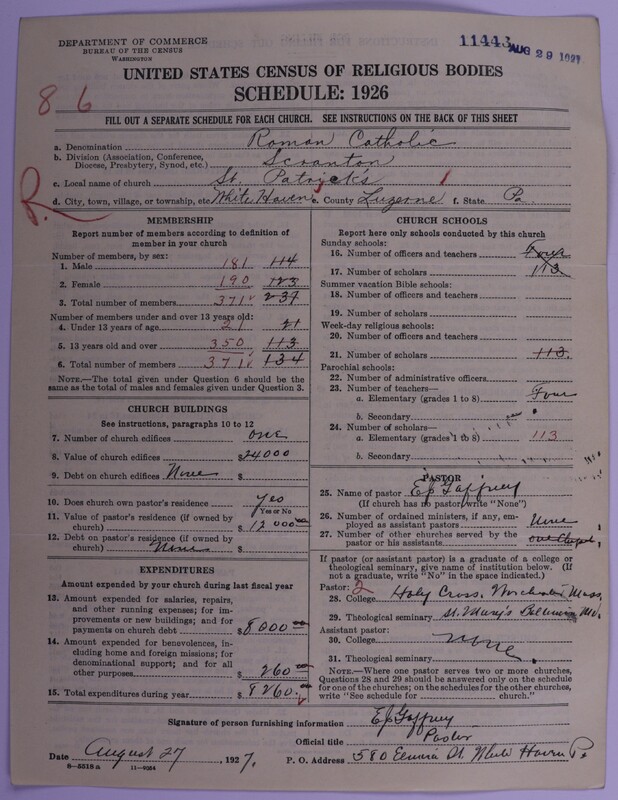 DEPARTMENT OF COMMERCE
BUREAU OF THE CENSUS
WASHINGTON
11443 AUG 29 1927
UNITED STATES CENSUS OF RELIGIOUS BODIES
SCHEDULE: 1926
8 6
FILL OUT A SEPARATE SCHEDULE FOR EACH CHURCH. SEE INSTRUCTIONS ON THE BACK OF THIS SHEET
a. Denomination Roman Catholic
b. Division (Association, Conference, Diocese, Presbytery, Synod, etc.) Scranton
c. Local name of church St. Patrick's
d. City, town, village, or township, etc White Haven e. County Luzerne f. State Pa.
R
MEMBERSHIP
Report number of members according to definition of member in your church
Number of members, by sex:
1. Male 181 114
2. Female 190 123
3. Total number of members 371 237
Number of members under and over 13 years old:
4. Under 13 years of age 21 21
5. 13 years old and over 350 113
6. Total number of members 371 134
NOTE.—The total given under Question 6 should be the same as the total of males and females given under Question 3.
CHURCH BUILDINGS
See instructions, paragraphs 10 to 12
7. Number of church edifices one
8. Value of church edifices $24000
9. Debt on church edifices None $
10. Does church own pastor's residence? Yes
Yes or No
11. Value of pastor's residence (if owned by church) $12000 00
12. Debt on pastor's residence (if owned by church) None $
EXPENDITURES
Amount expended by your church during last fiscal year
13. Amount expended for salaries, repairs, and other running expenses; for improvements or new buildings; and for payments on church debt $8000 00
14. Amount expended for benevolences, including home and foreign missions; for denominational support; and for all other purposes $260 00
15. Total expenditures during year $8260 00
CHURCH SCHOOLS
Report here only schools conducted by this church
Sunday schools:
16. Number of officers and teachers Four
17. Number of scholars 113
Summer vacation Bible schools:
18. Number of officers and teachers
19. Number of scholars
Week-day religious schools:
20. Number of officers and teachers
21. Number of scholars 113.
Parochial schools:
22. Number of administrative officers
23. Number of teachers—
a. Elementary (grades 1 to 8) Four
b. Secondary
24. Number of scholars—
a. Elementary (grades 1 to 8) 113
b. Secondary
PASTOR
25. Name of pastor E J Gaffney
(If church has no pastor, write "None")
26. Number of ordained ministers, if any, employed as assistant pastors None
27. Number of other churches served by the pastor or his assistants one Chapel
If pastor (or assistant pastor) is a graduate of a college or theological seminary, give name of institution below. (If not a graduate, write "No" in the space indicated.)
Pastor: 2
28. College Holy Cross, Worchester Mass.
29. Theological seminary St. Mary's Md.
Assistant pastor:
30. College None.
31. Theological seminary
NOTE.—Where one pastor serves two or more churches, Questions 28 and 29 should be answered only on the schedule for one of the churches; on the schedules for the other churches, write "See schedule for church."
Signature of person furnishing information E J Gaffney
Official title Pastor
Date August 27, 1927. P. O. Address 580 St. White Haven Pa
8-5518 a 11-9284